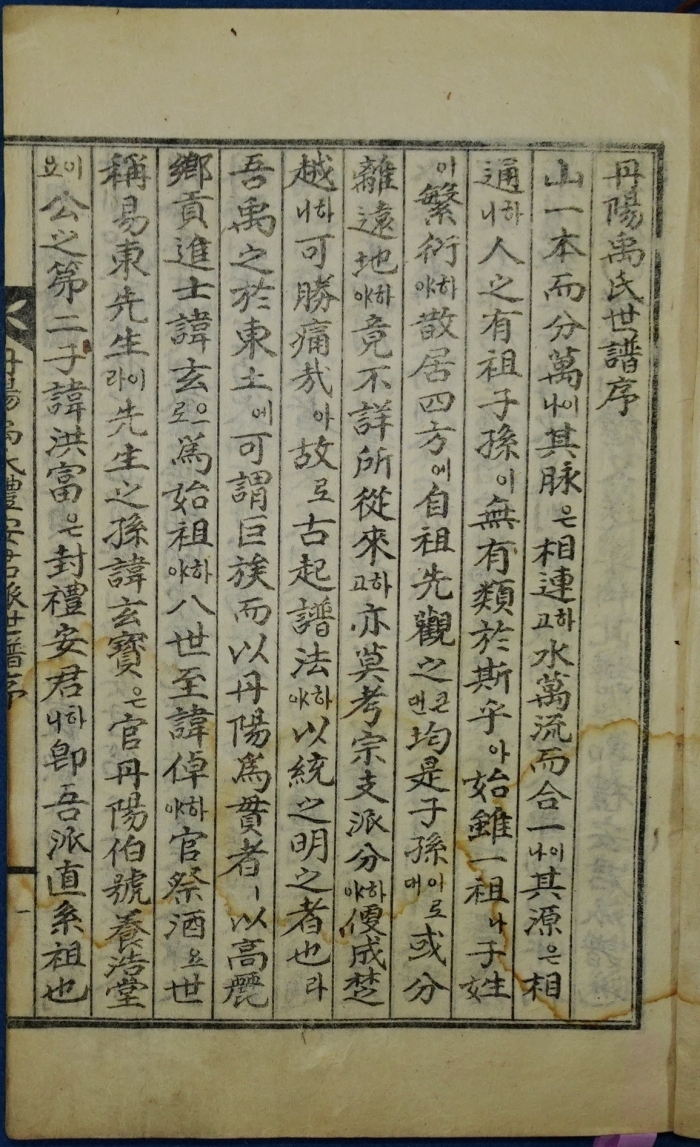 丹陽禹氏世譜序
山一本而分萬이나其脉은相連하고水萬流而合一이나其源은相
通하니人之有祖子孫이無有類於斯乎아始雖一祖나子姓
이繁衍하야散居四方에自祖先觀之컨댄均是子孫이로대或分
離遠地하야竟不詳所從來하고亦莫考宗支派分하야便成楚
越하니可勝痛哉아故로古起譜法하야以統之明之者也라
吾禹之於東土에可謂巨族而以丹陽爲貫者ㅣ以高麗
鄕貢進士諱玄으로爲始祖하야八世至諱倬하야官祭酒요世
稱易東先生이라先生之孫諱玄寶은官丹陽伯號養浩堂
이요公之第二子諱洪富은封禮安君하니卽吾派直系祖也
丹陽禹氏禮安君派世譜序
一